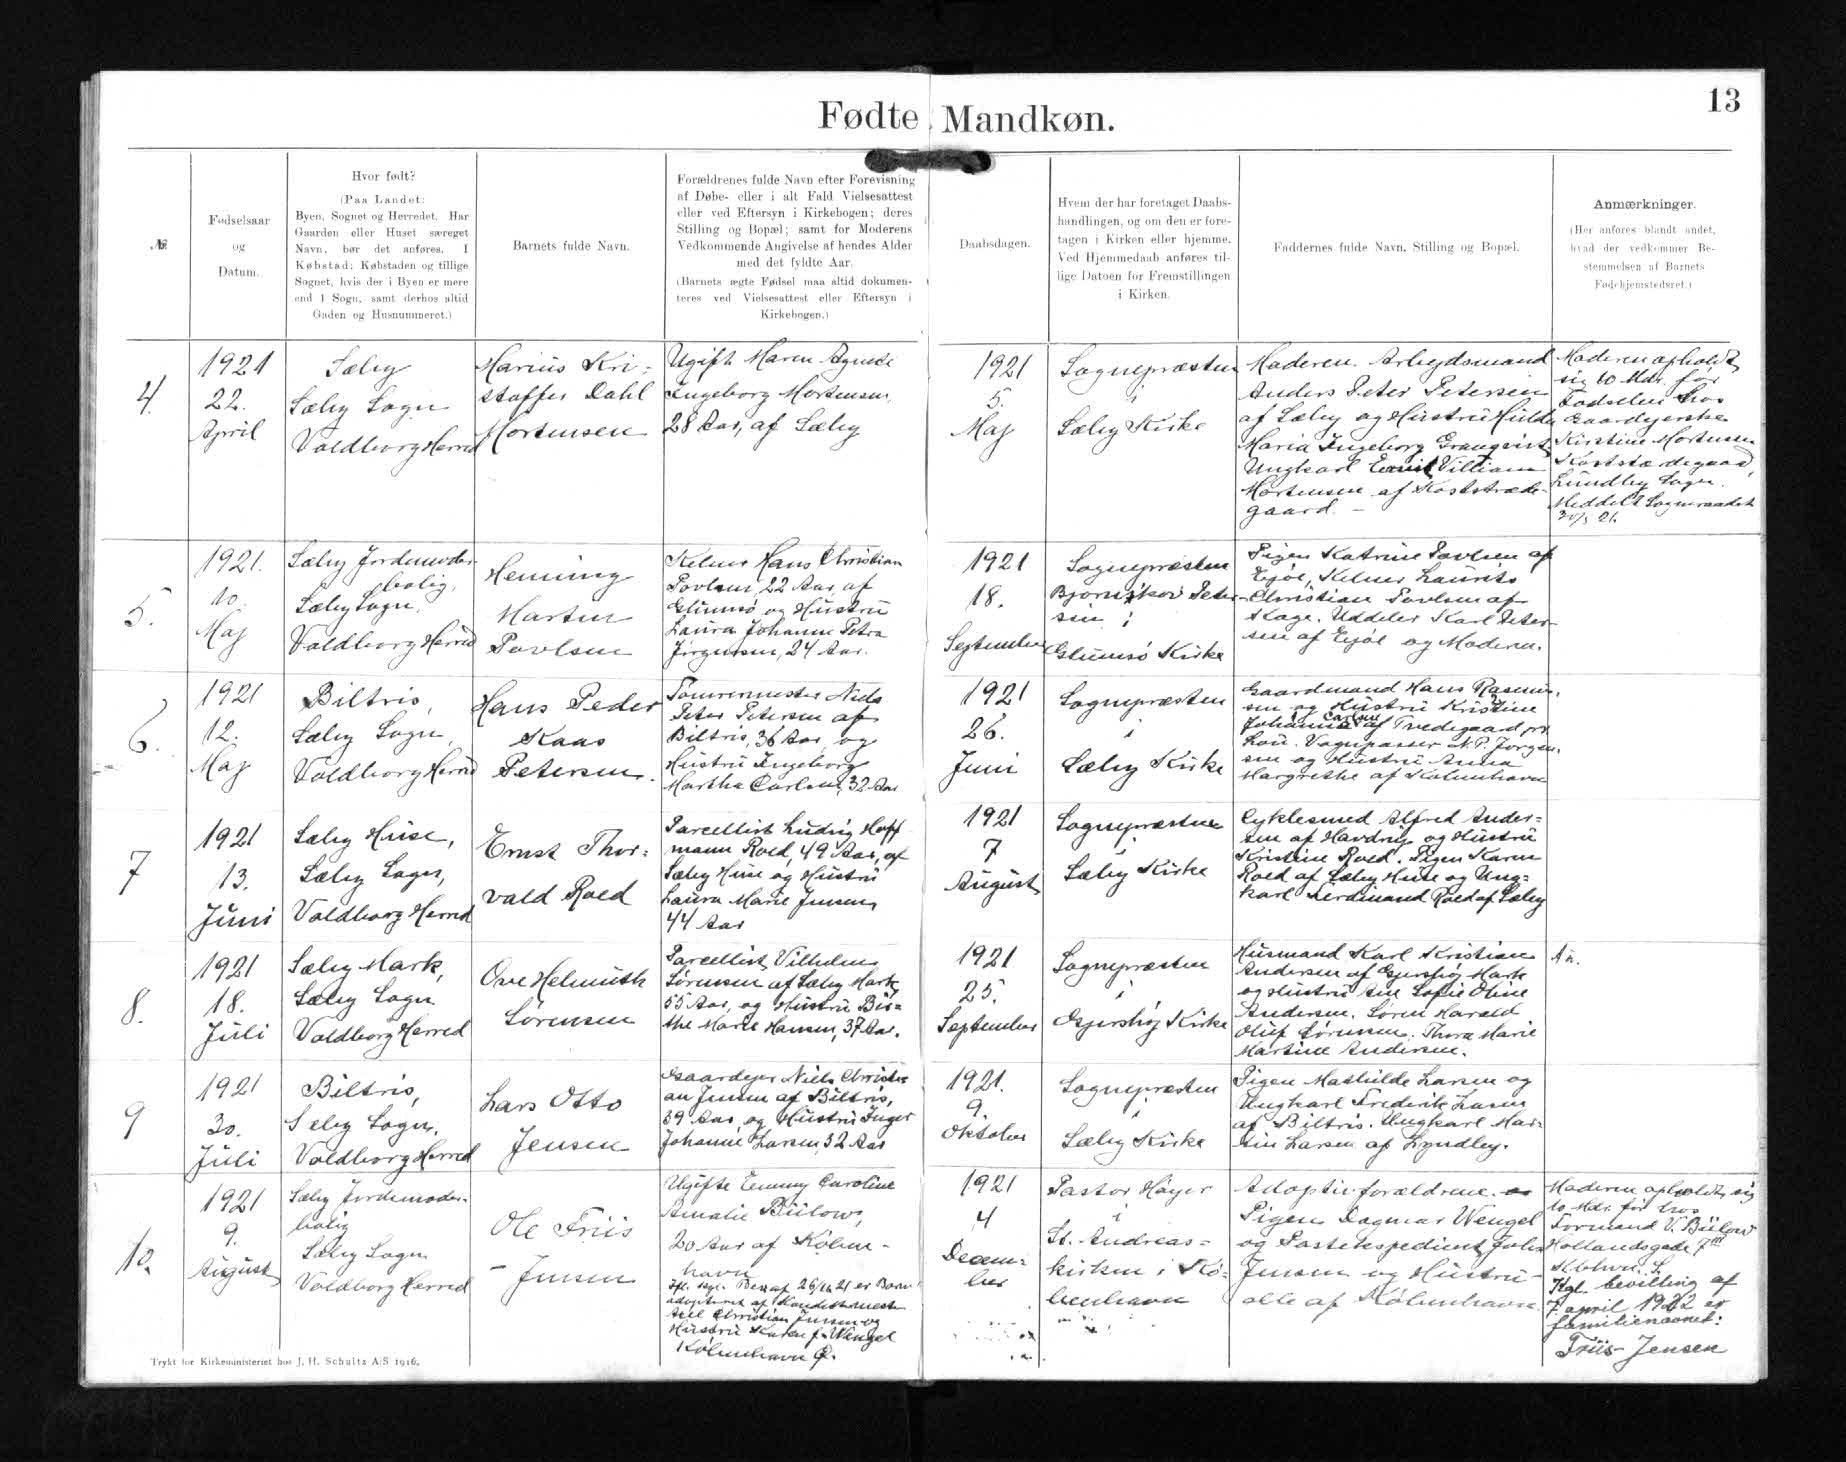 Fødte Mandkøn.
13
№
Fødselsaar
og
Datum.
Hvor født?
(Paa Landet:
Byen, Sognet og Herredet. Har
Gaarden eller Huset særeget
Navn, bør det anføres. I
Købstad: Købstaden og tillige
Sognet, hvis der i Byen er mere
end 1 Sogn, samt derhos altid
Gaden og Husnummeret.)
Barnets fulde Navn.
Forældrenes fulde Navn efter Forevisning
af Døbe- eller i alt Fald Vielsesattest
eller ved Eftersyn i Kirkebogen; deres
Stilling og Bopæl; samt for Moderens
Vedkommende Angivelse af hendes Alder
med det fyldte Aar.
(Barnets ægte Fødsel maa altid dokumen-
teres ved Vielsesattest eller Eftersyn i
Kirkebogen.)
Daabsdagen.
Hvem der har foretaget Daabs-
handlingen, og om den er fore-
tagen i Kirken eller hjemme.
Ved Hjemmedaab anføres til-
lige Datoen for Fremstillingen
i Kirken.
Faddernes fulde Navn, Stilling og Bopæl.
Anmærkninger.
(Her anføres blandt andet,
hvad der vedkommer Be-
stemmelsen af Barnets
Fødehjemstedsret.)
4.
1921
22.
April
Sæby
Sæby Sogn
Voldborg Herred
Marius Kri-
stoffer Dahl
Mortensen
Ugift Maren Agnete
Ingeborg Mortensen,
28 Aar, af Sæby
1921
5.
Maj
Sognepræsten
i
Sæby Kirke
Moderen. Arbejdsmand
Anders Peter Petersen
af Sæby og Hustru Hulda
Maria Ingeborg Granqvist
Ungkarl Emil Villiam
Mortensen af Koststræde-
gaard. -
Moderen opholdt
sig 10 Mdr. før
Fødselen hos
Gaardejerske
Kirstine Mortensen
Koststædegaard,
Lyndby Sogn.
Meddelt Sogneraadet
5.
1921.
10.
Maj
Sæby Jordemoder-
bolig,
Sæby Sogn,
Voldborg Herred
Henning
Martin
Povlsen
Kelner Hans Christian
Povlsen, 22 Aar, af
Glumsø og Hustru
Laura Johanne Petra
Jørgensen, 24 Aar.
1921
18.
September
Sognepræsten
Bjørnskov Peter-
sen i
Glumsø Kirke
Pigen Katrine Povlsen af
Ejøl, Kelner Laurits
Christian Povlsen af
Køge. Uddeler Karl Peter-
sen af Ejøl og Moderen.
6.
1921
12.
Maj
Biltris,
Sæby Sogn,
Voldborg Herred
Hans Peder
Kaas
Petersen.
Tømrermester Niels
Peter Petersen af
Biltris, 36 Aar, og
Hustru Ingeborg
Martha Carlsen, 32 Aar
1921
26.
Juni
Sognepræsten
i
Sæby Kirke
Gaardmand Hans Rasmus-
sen og Hustru Kristine
Johanne Carlsen af Tvedegaard pr.
Lou. Vognpasser N. P. Jørgen-
sen og Hustru Anna
Margrethe af København
7
1921
13.
Juni
Sæby Huse,
Sæby Sogn,
Voldborg Herred
Ernst Thor-
vald Roed
Parcellist Ludvig Hoff
mann Roed, 49 Aar, af
Sæby Huse og Hustru
Laura Marie Jensen,
44 Aar
1921
7
August
Sognepræsten
i
Sæby Kirke
Cyklesmed Alfred Ander-
sen af Havdrup og Hustru
Kristine Roed. Pigen Karen
Roed af Sæby Huse og Ung-
karl Ferdinand Roed af Sæby
8.
1921
18.
Juli
Sæby Mark,
Sæby Sogn
Voldborg Herred
Ove Helmuth
Sørensen
Parcellist Vilhelm
Sørensen af Sæby Mark
55 Aar, og Hustru Bir-
the Marie Hansen, 37 Aar.
1921
25.
September
Sognepræsten
i
Gjershøj Kirke
Husmand Karl Kristian
Andersen af Gjershøj Mark
og Hustru Ane Sofie Oline
Andersen. Søren Harald
Oluf Sørensen. Thora Marie
Martine Andersen.
9
1921
30.
Juli
Biltris,
Sæby Sogn,
Voldborg Herred
Lars Otto
Jensen
Gaardejer Niels Christi-
an Jensen af Biltris,
39 Aar, og Hustru Inger
Johanne Larsen, 32 Aar
1921.
9.
Oktober
Sognepræsten
i
Sæby Kirke
Pigen Mathilde Larsen og
Ungkarl Frederik Larsen
af Biltris. Ungkarl Mar-
tin Larsen af Lyndby.
10.
1921
9.
August
Sæby Jordemoder-
bolig
Sæby Sogn
Voldborg Herred
Ole Friis
- Jensen
Ugifte Emmy Caroline
Amalie Bülow,
20 Aar af Køben-
havn
Ifl. kgl. Bev. af 26/10 21 er Barnet
adopteret af
Christian Jensen og
Hustru Karen f. Wengel
København Ø.
1921
4
Decem-
ber
Pastor Højer
i
St. Andreas-
kirken i Kø-
benhavn
Adoptivforældrene.
Pigen Dagmar Wengel
og Postekspedient Johs
Jensen og Hustru
alle af København.
Moderen opholdt sig
10 Mdr. før hos
Formand V. Bülow
Hollandsgade 7
Kbhvn. S.
Kgl. bevilling af
7. april 1922 er
familienavnet:
Friis-Jensen
Trykt for Kirkeministeriet hos J. H. Schultz A/S 1916.